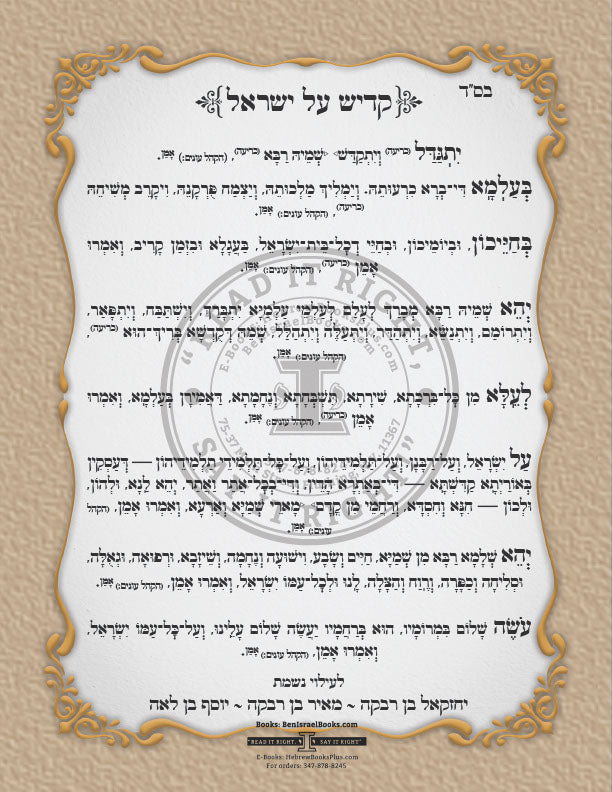 בס"ד
קדיש על ישראל
יִתְגַּדַּל (כריעה) וְיִתְקַדַּשׁ שְׁמֵיהּ רַבָּא (כריעה), (הקהל עונים:) אָמֵן.
בְּעָלְמָא דִּי־בְרָא כִּרְעוּתֵהּ. וְיַמְלִיךְ מַלְכוּתֵהּ, וְיַצְמַח פֻּרְקָנֵהּ, וִיקָרֵב מְשִׁיחֵהּ
(כריעה), (הקהל עונים:) אָמֵן.
בְּחַיֵּיכוֹן, וּבְיוֹמֵיכוֹן, וּבְחַיֵּי דְכָל־בֵּית־יִשְׂרָאֵל, בַּעֲגָלָא וּבִזְמַן קָרִיב, וְאִמְרוּ
אָמֵן (כריעה), (הקהל עונים:) אָמֵן.
יְהֵא שְׁמֵיהּ רַבָּא מְבָרַךְ לְעָלַם לְעָלְמֵי עָלְמַיָּא יִתְבָּרַךְ, וְיִשְׁתַּבַּח, וְיִתְפָּאַר,
וְיִתְרוֹמַם, וְיִתְנַשֵּׂא, וְיִתְהַדָּר, וְיִתְעַלֶּה וְיִתְהַלָּל, שְׁמֵהּ דְּקֻדְשָׁא בְּרִיךְ־הוּא (כריעה),
(הקהל עונים:) אָמֵן.
לְעֵלָּא מִן כָּל־בִּרְכָתָא, שִׁירָתָא, תֻּשְׁבְּחָתָא וְנֶחָמָתָא, דַּאֲמִירָן בְּעָלְמָא, וְאִמְרוּ
אָמֵן (כריעה), (הקהל עונים:) אָמֵן.
עַל יִשְׂרָאֵל, וְעַל־רַבָּנָן, וְעַל־תַּלְמִידֵיהוֹן, וְעַל־כָּל־תַּלְמִידֵי תַלְמִידֵיהוֹן — דְּעָסְקִין
בְּאוֹרַיְתָא קַדִּשְׁתָּא — דִּי־בְאַתְרָא הָדֵין, וְדִי־בְכָל־אֲתַר וַאֲתַר, יְהֵא לָנָא, וּלְהוֹן,
וּלְכוֹן — חִנָּא וְחִסְדָּא, וְרַחֲמֵי מִן קֳדָם מָארֵךְ שְׁמַיָּא וְאַרְעָא, וְאִמְרוּ אָמֵן, (הקהל
עונים:) אָמֵן.
יְהֵא שְׁלָמָא רַבָּא מִן שְׁמַיָּא, חַיִּים וְשָׂבָע, וִישׁוּעָה וְנֶחָמָה, וְשֵׁיזָבָא, וּרְפוּאָה, וּגְאֻלָּה,
וּסְלִיחָה וְכַפָּרָה, וְרֶוַח וְהַצָּלָה, לָנוּ וּלְכָל־עַמּוֹ יִשְׂרָאֵל, וְאִמְרוּ אָמֵן, (הקהל עונים:) אָמֵן.
עֹשֶׂה שָׁלוֹם בִּמְרוֹמָיו, הוּא בְּרַחֲמָיו יַעֲשֶׂה שָׁלוֹם עָלֵינוּ, וְעַל־כָּל־עַמּוֹ יִשְׂרָאֵל,
וְאִמְרוּ אָמֵן, (הקהל עונים:) אָמֵן.
לעילוי נשמת
יחזקאל בן רבקה ~ מאיר בן רבקה ~ יוסף בן לאה
Books: BenIsraelBooks.com
"READ IT RIGHT, SAY IT RIGHT"
E-Books: HebrewBooksPlus.com
For orders: 347-878-8245
"READ IT RIGHT,
SAY IT RIGHT"